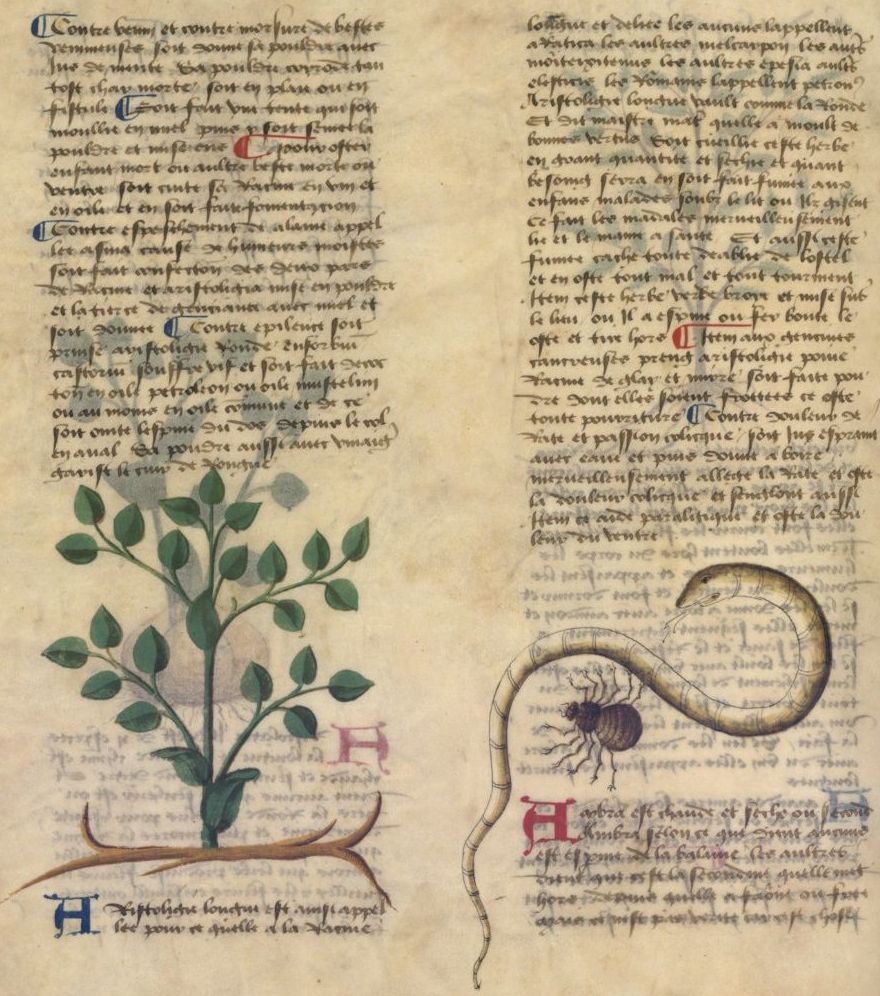 Contre venin et contre morsure de bestes
venimeuses soit donne sa pouldre avec
jus de mente Sa pouldre corrode tan
tost char morte soit en plaie ou en
fistule Soit fait une tente qui soit
moullie en miel puis y soit semee la
pouldre et mise ens pour oster
enfant mort ou aultre beste morte ou
ventre soit cuite sa Racine en vin et
en oile et en soit faite fomentacion
Contre espessement de alaine appel
lee asma cause de humeurs moistes
soit fait confection des deux pars
de Racine et aristologia mise en pouldre
et la tierce de genciane avec miel et
soit donnee Contre epilence soit
prinse aristologie Ronde enforbiu
castoriu souffre vif et soit fait decoc
ton en oile petroleon ou oile mustelim
ou au moins en oile comune et de ce
soit ointe lespine du dos depuis le col
en aval Sa poudre aussi avec vinaigre
garist le cuir de Rongne
Aristologie longue est ainsi appel
lee pour ce quelle a la Racine
longue et deliee les aucuns lappellent
aratica les aultres melcarpon les aut's
les aultres epesia ault's
elesticis les Romains lappellent petron
Aristologie longue vault comme la Ronde
Et dit maistre mat' quelle a moult de
bonnes vertus Soit cueillie ceste herbe
en grant quantite et sechie et quant
besoing sera en soit fait fumee aux
enfans malades soubz le lit ou Ilz gisent
ce fait les malades merveilleusement
lie et le maine a sante Et aussi ceste
fumee cache toute deablie de lostel
et en oste tout mal et tout tourment
Item ceste herbe verde broye et mise sur
le lieu ou Il a espine ou fer boute le
oste et tire hors Item aux gencives
cancreuses preng aristologie poivre
Racine de glay et mirre soit faite pou
dre dont elles soient frottees ce oste
toute pourriture Contre douleur de
Rate et passion colicque soit jus espraint
avec eaue et puis donne a boire
merveilleusement allege la Rate et oste
la douleur colicque et senglout aussi
Item ce aide paralitique et oste la dou
leur du ventre
Ambra est chaude et seche ou second
Ambra selon ce que dient aucuns
est esperme de la balaine les aultres
dient que cest la secondine quelle met
hors depuis quelle a faonne ou fore
mais ce nest pas verite car cest chose